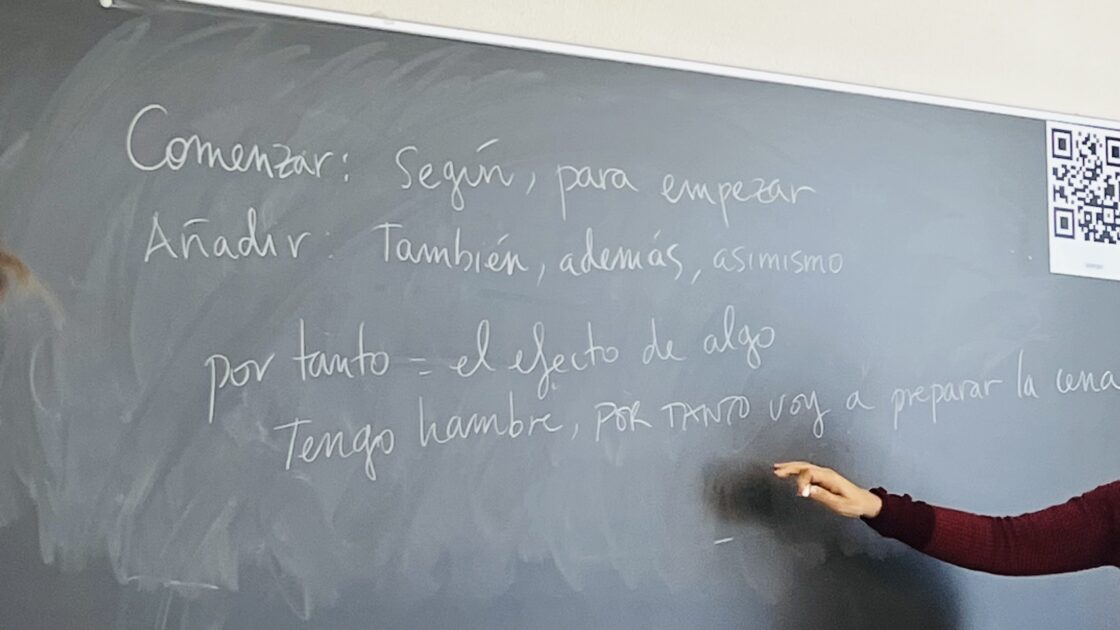 Comenzar: Según, para empezar
Añadir: También, además, asimismo
por tanto = el efecto de algo
Tengo hambre, POR TANTO voy a preparar la cena